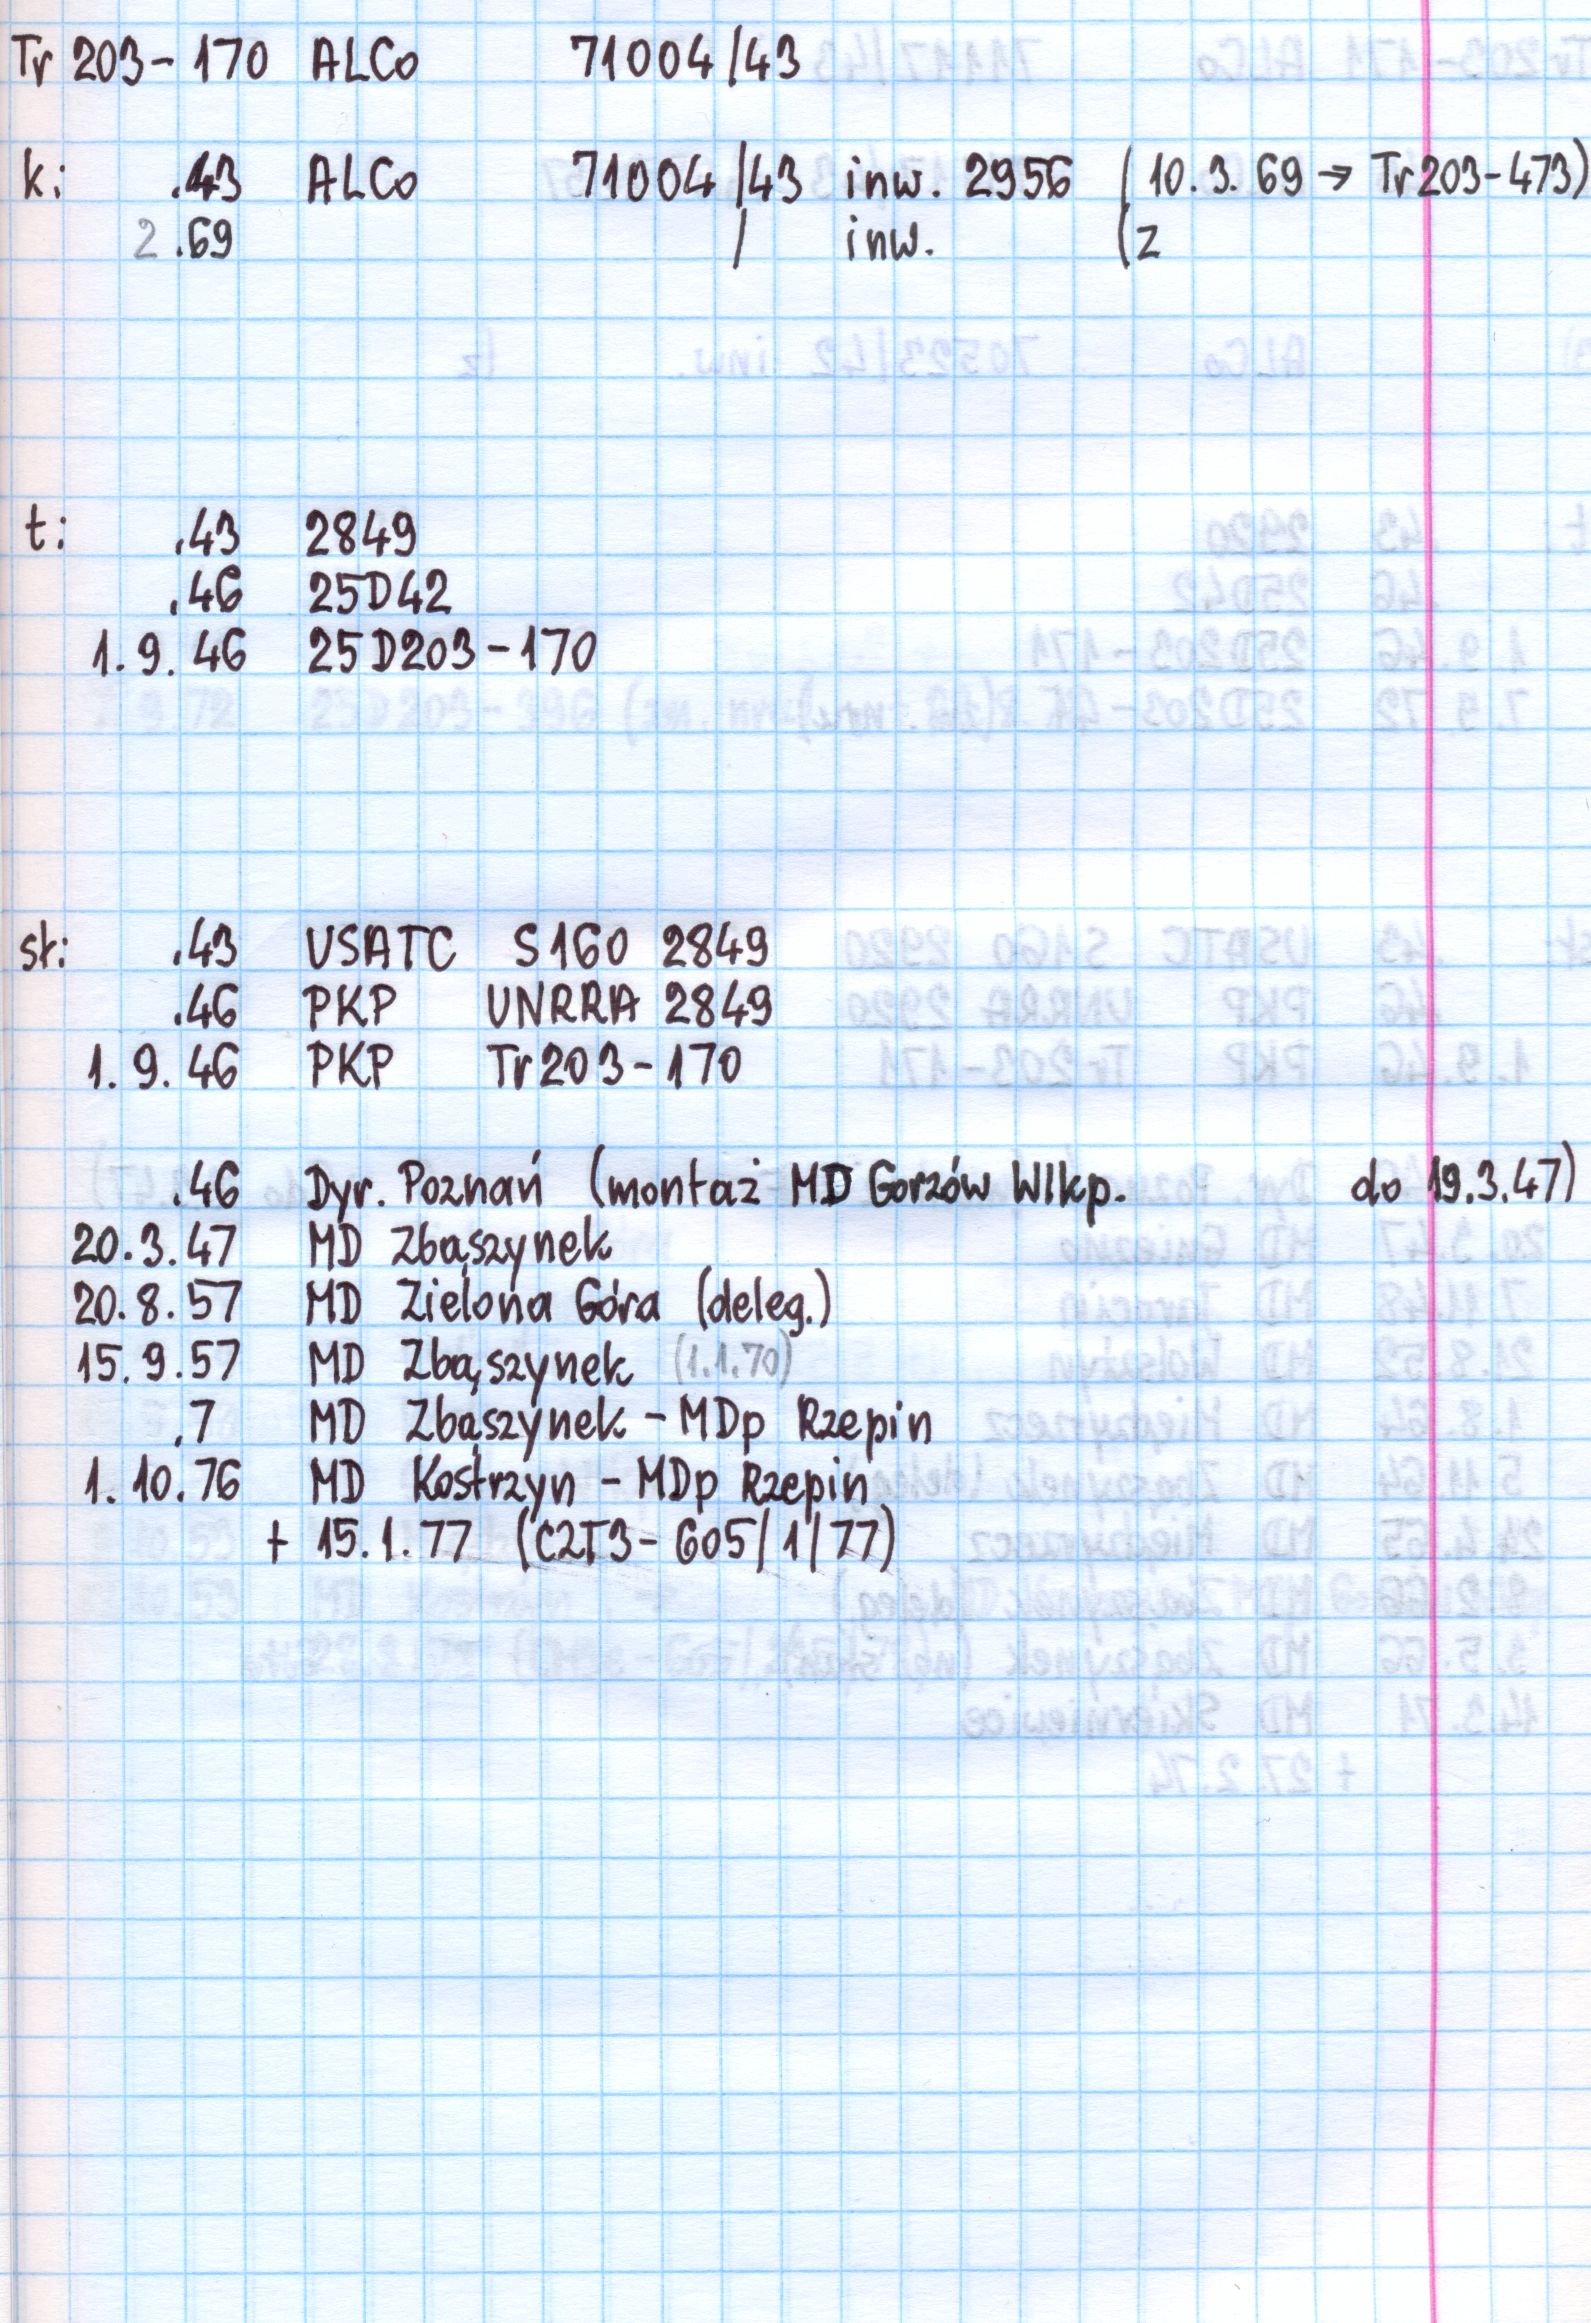 Tr 203-170 ALCo 71004/43
k: .43 ALCo 71004/43 inw. 2956 (10.3.69 → Tr203-473)
2.69 / inw. (z
t: .43 2849
.46 25D42
1.9.46 25D203-170
st: .43 USATC S160 2849
.46 PKP UNRRA 2849
1.9.46 PKP Tr203-170
.46 Dyr. Poznań (montaż MD Gorzów Wlkp. do 19.3.47)
20.3.47 MD Zbąszynek
20.8.57 MD Zielona Góra (deleg.)
15.9.57 MD Zbąszynek (1.1.70)
.7 MD Zbąszynek - MDp Rzepin
1.10.76 MD Kostrzyn - MDp Rzepin
+ 15.1.77 (C2T3-605/1/77)